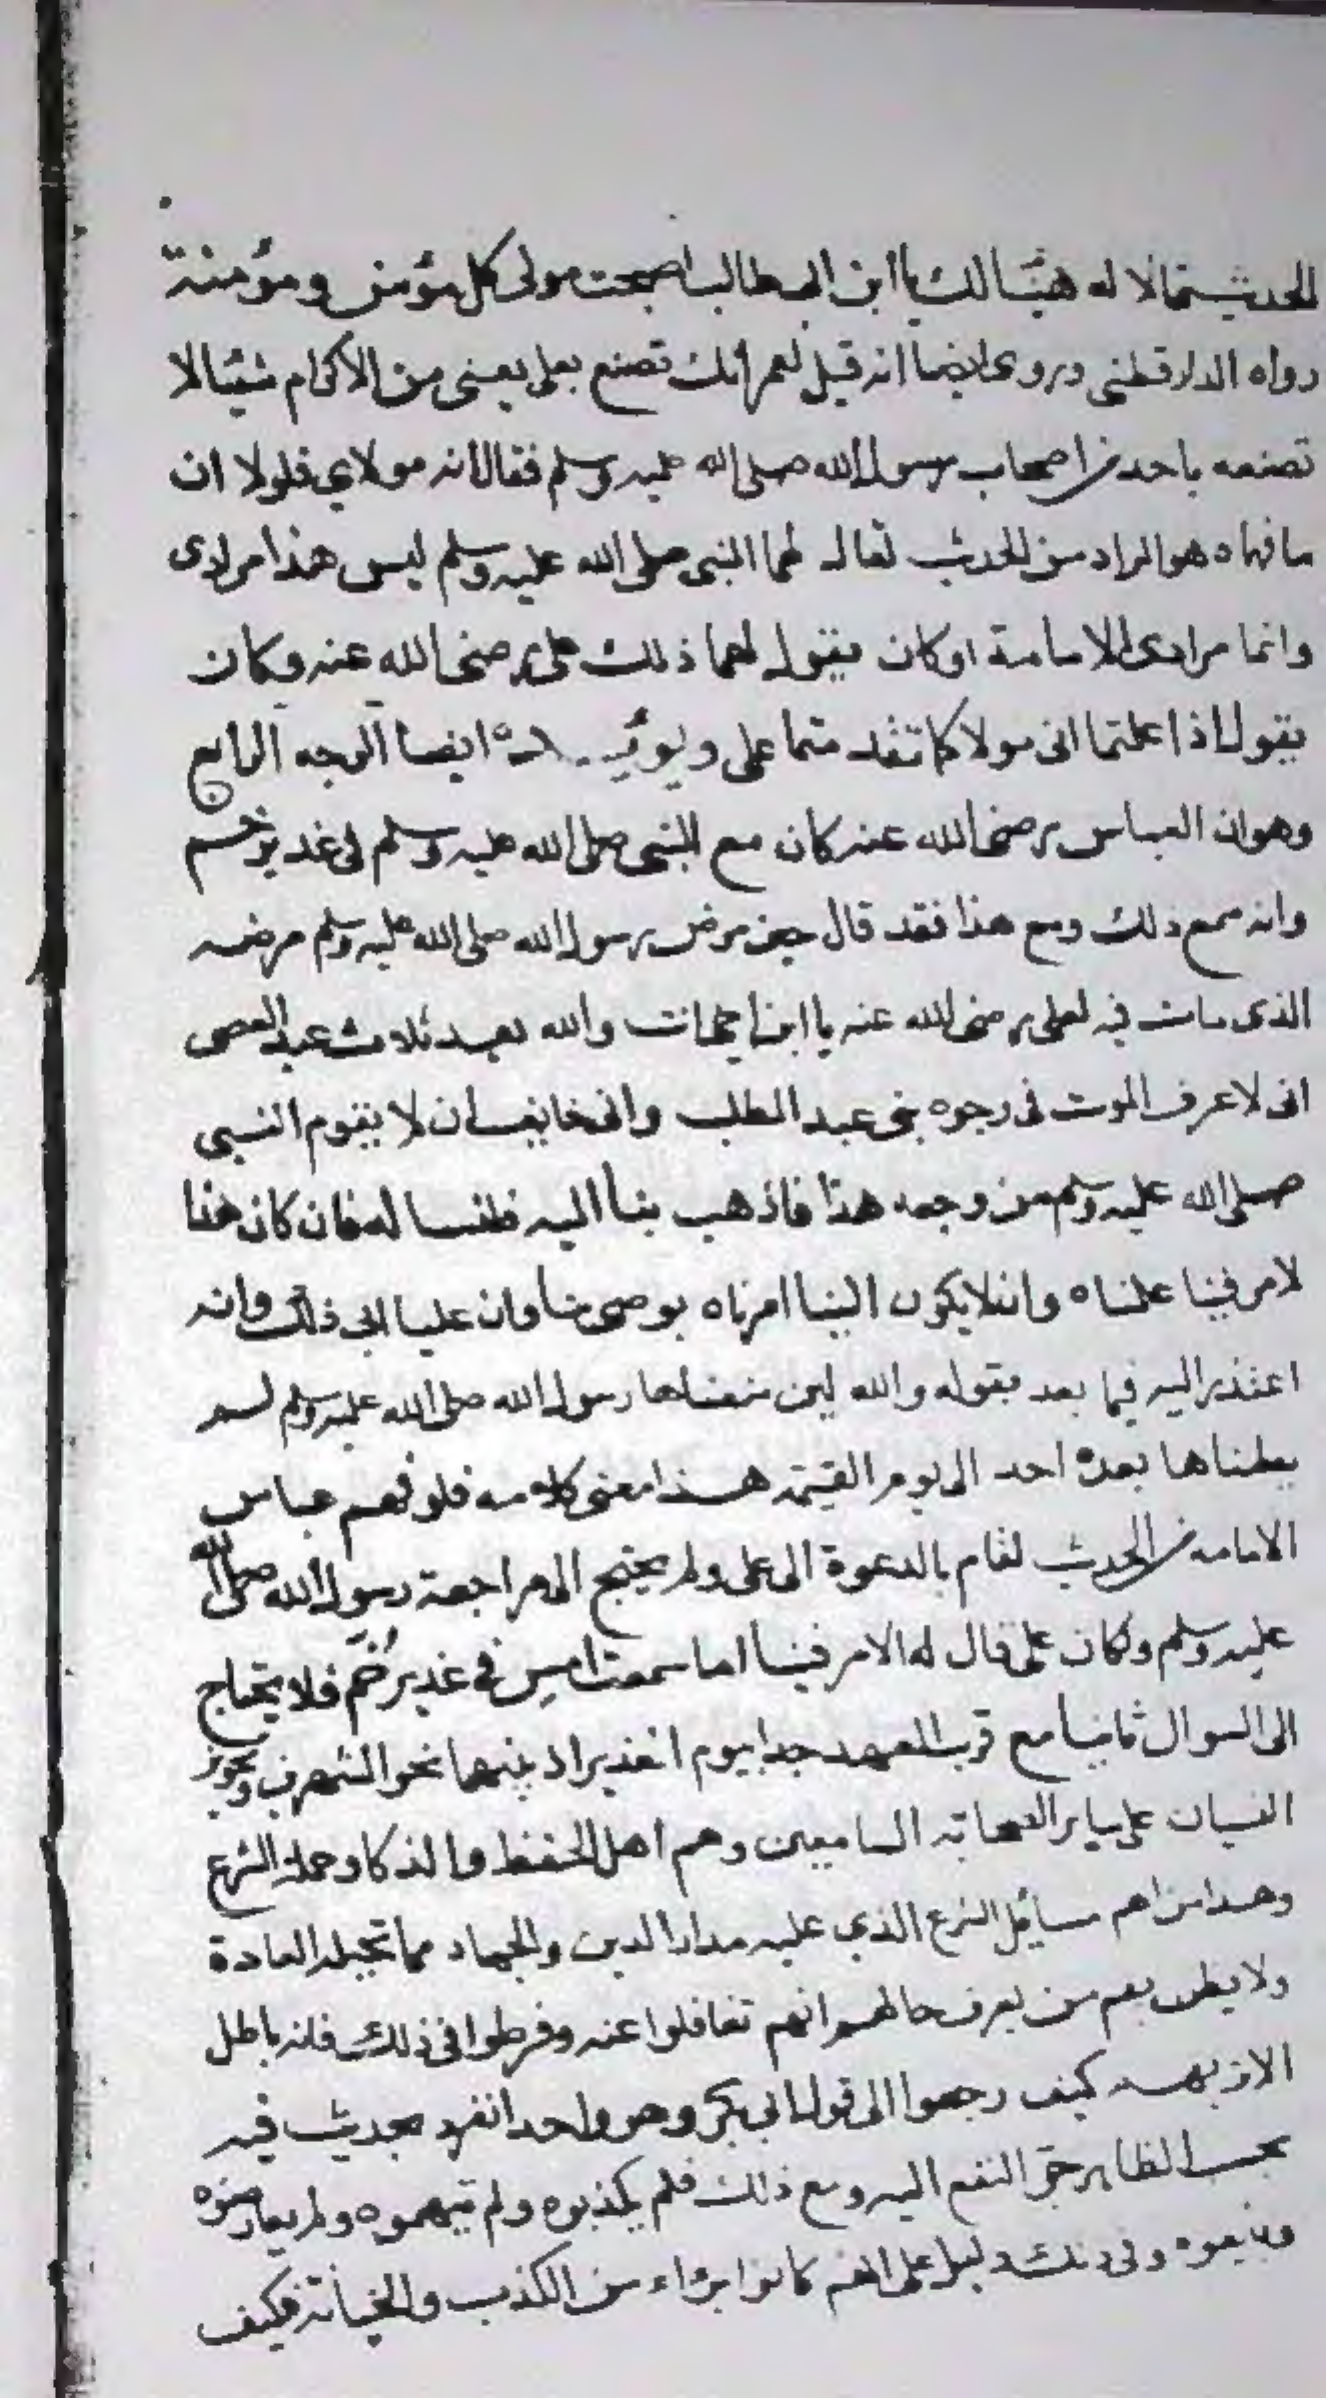 الحديث قالا له هنيئا لك يا ابن ابي طالب اصبحت مولى كل مؤمن ومؤمنة
رواه الدارقطني وروى ايضا انه قيل لعمر انك تصنع بعلي يعني من الاكرام شيئا لا
تصنعه باحد من اصحاب رسول الله صلى الله عليه وسلم فقال انه مولاي فلولا ان
ما فهماه هو المراد من الحديث لقال لهما النبي صلى الله عليه وسلم ليس هذا مرادى
وانما مرادى الامامة او كان يقول لهما ذلك على رضى الله عنه وكان
يقول اذا علمتما انى مولاكما تقدمتما على ايضا الوجه الرابع
وهو ان العباس رضى الله عنه كان مع النبى صلى الله عليه وسلم فى غدير خم
وانه سمع ذلك ومع هذا فقد قال حين مرض رسول الله صلى الله عليه وسلم مرضه
الذى مات فيه لعلى رضى الله عنه يا ابن اخى انت والله بعد ثلاث عبد العصى
انى لاعرف الموت فى وجوه بنى عبد المطلب وانى خايف ان لا يقوم النبى
صلى الله عليه وسلم من وجعه هذا فاذهب بنا اليه فلنساله فان كان هذا
الامر فينا علمناه وان لا يكون الينا امرناه يوصى بنا وان عليا ابى ذلك وانه
اعتذر اليه فيما بعد بقوله والله لين منعناها رسول الله صلى الله عليه وسلم لم
يعطناها بعده احد الى يوم القيمة هذا معنى كلامه فلو فهم عباس
الامامه من الحديث لقام بالدعوة الى على ولم يحتج الى مراجعة رسول الله صلى الله
عليه وسلم ولكان على قال له الامر فينا اما سمعت امس فى غدير خم فلا يحتاج
الى السوال ثانيا مع قرب العهد جدا بيوم الغدير اذ بينهما نحو الشهرين وتجويز
النسيان على ساير الصحابة السامعين وهم اهل الحفظ والذكا وحملة الشرع
وهذا من اهم مسائل الشرع الذي عليه مدار الدين والجهاد مما تحيله العادة
ولا يظن بهم من يعرف حالهم انهم تغافلوا عنه وفرطوا فى ذلك فانه باطل
كيف رجعوا الى قول ابى بكر وهو واحد انفرد بحديث فيه
بحسب الظاهر جر النفع اليه ومع ذلك فلم يكذبوه ولم يتهموه ولم يعارضوه
وبايعوه وفى ذلك دليل على انهم كانوا برءاء من الكذب والخيانة فكيف